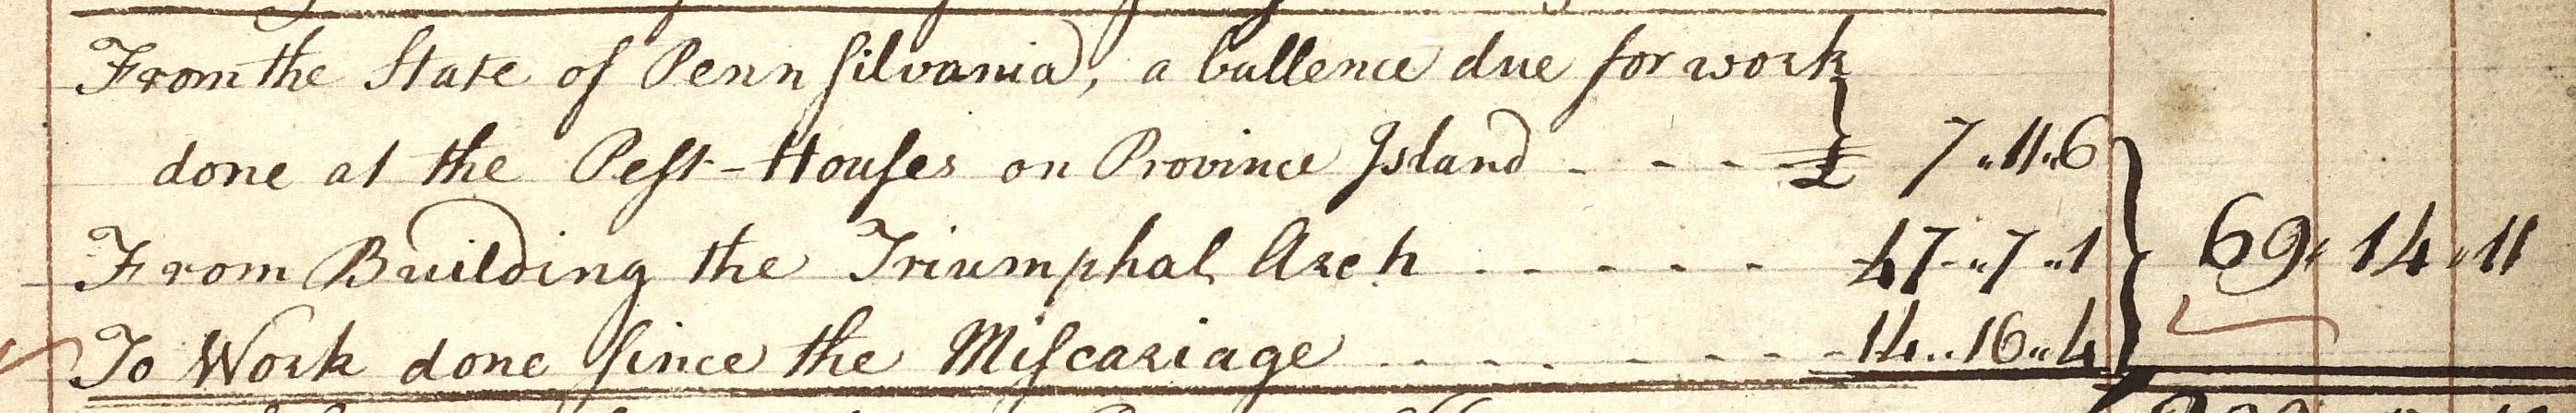 From the State of Pennsilvania, a ballence due for work
done at the Pest-Houses on Province Island - - - - £ 7..11..6
From Building the Triumphal Arch - - - - - 47..7..1 69..14..11
To Work done since the Miscariage - - - - - - - 14..16..4